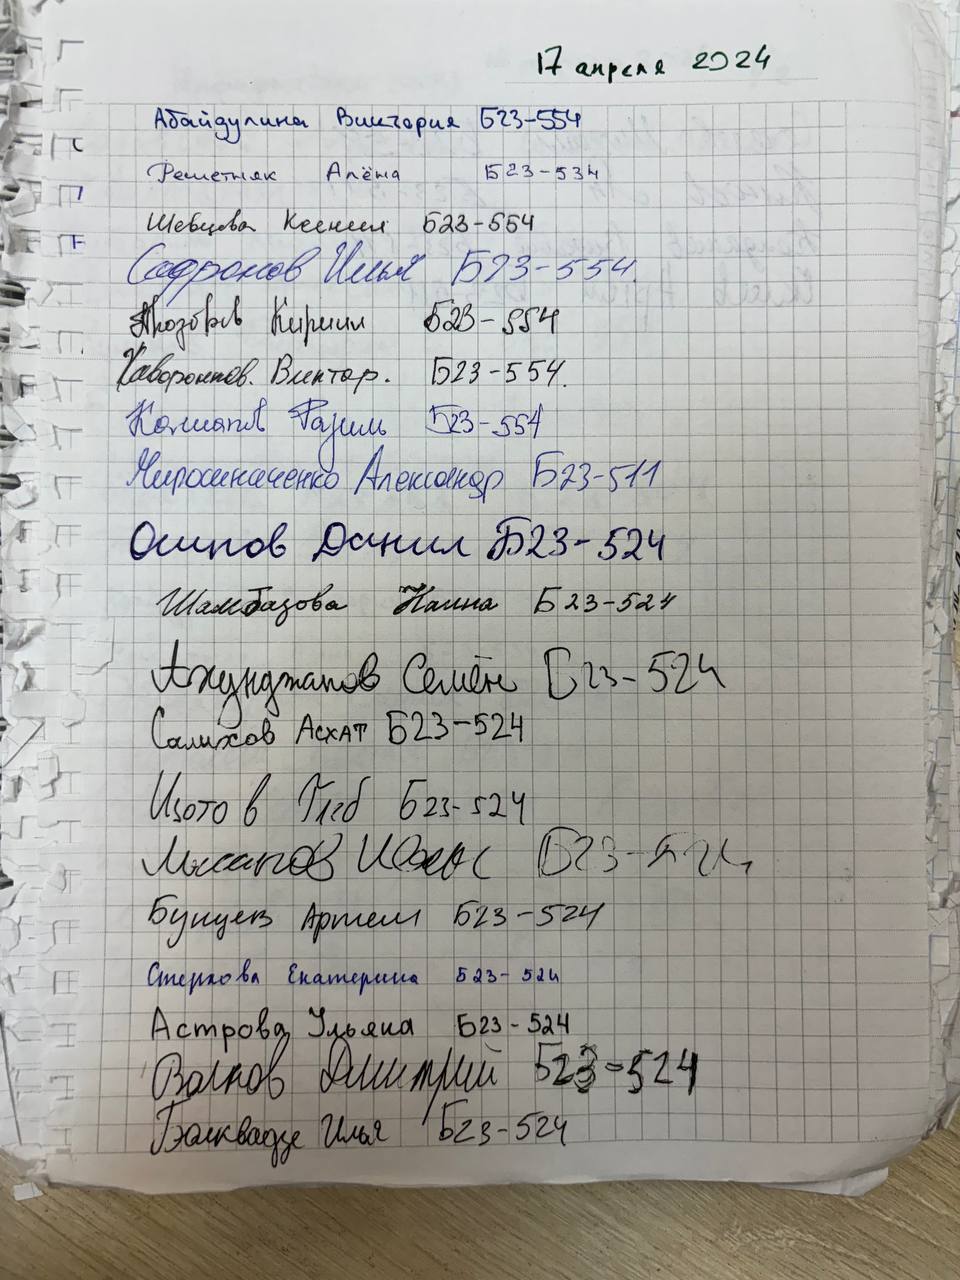 17 апреля 2024
Абайдулина Виктория Б23-554
Решетняк Алёна Б23-534
Шевцова Ксения Б23-554
Сафронов Илья Б23-554
Кирилл Б23-554
Виктор. Б23-554.
Разиль Б23-554
Мирошниченко Александр Б23-511
Осипов Данил Б23-524
Шамбазова Наина Б23-524
Ахунджанов Семён Б23-524
Салихов Асхат Б23-524
Изотов Глеб Б23-524
Б23-524
Бунцев Артем Б23-524
Стеркова Екатерина Б23-524
Астрова Ульяна Б23-524
Волков Дмитрий Б23-524
Бэлквадзе Илья Б23-524